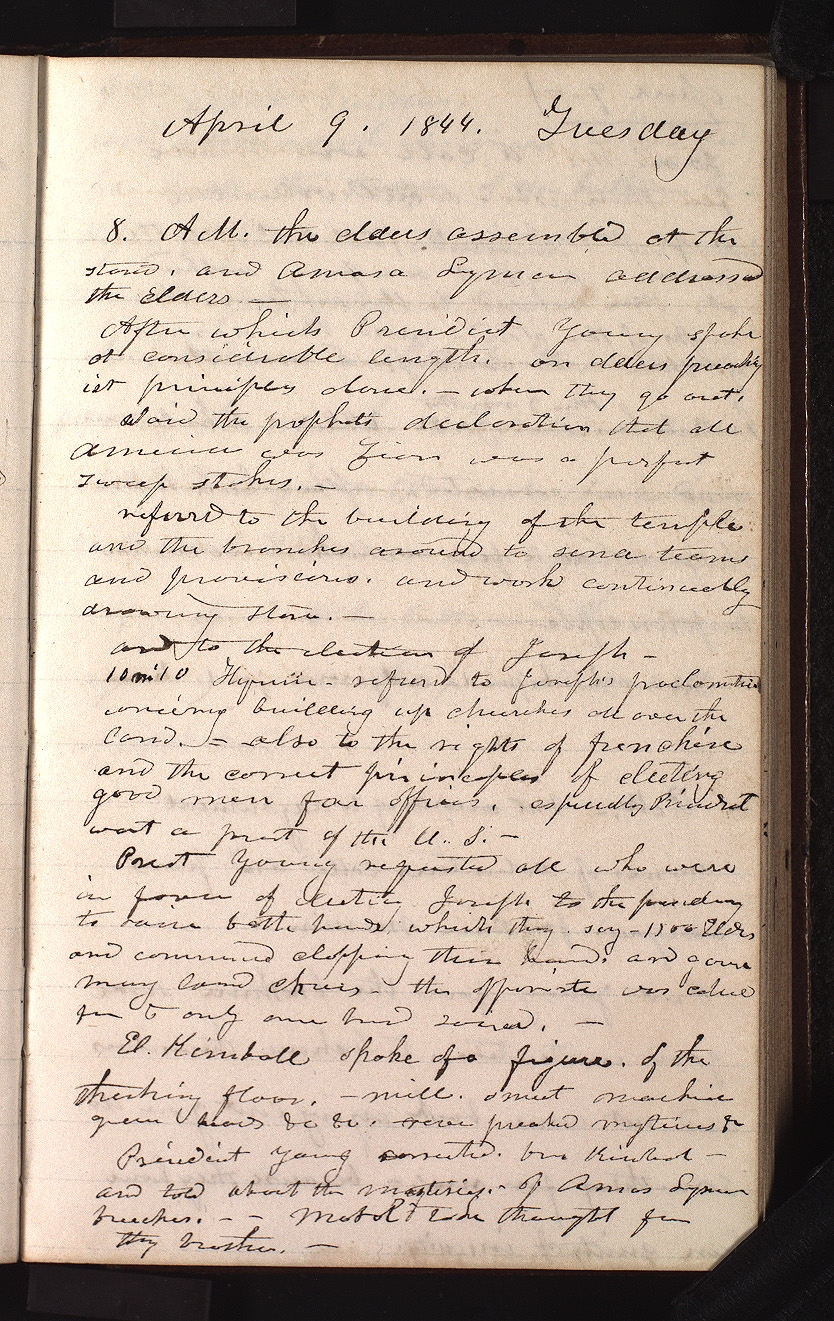 April 9. 1844. Tuesday
8. A.M. the elders assembled at the
stand. and Amasa Lyman addressed
the Elders —
After which President Young spoke
at considerable length. on elders preachig
1st principles alone. — when they go out.
Said the prophets declaration that all
America was Zion was a perfect
sweep stakes. —
referrd to the building of the temple
and the branches around to send teams
and provisions. and work continually
drawing stone. —
and to the election of Joseph —
10 m 10 Hyrum - referrd to Joseph's proclamation
concering building up churches all over the
land. — also to the rights of franchise
and the correct principles of electing
good men for offices. especially
of the U. S. —
Prest Young requested all who were
in favor of electig Joseph to the presidency
to raise both hands. which they. say - 1100 Elders
and commencd clapping their hands. and gave
many loud cheers - the opposite was called
for & only one hand raised. —
El. Kimball spoke of a figure. of the
threshing floor. — mill. smut machine
green hands &c &c. never preachd mysteries &
President Young corrected. bro Kimball —
and told about the mysteries - of Amos Lyman
breeches. — — thought for
thy brother. —